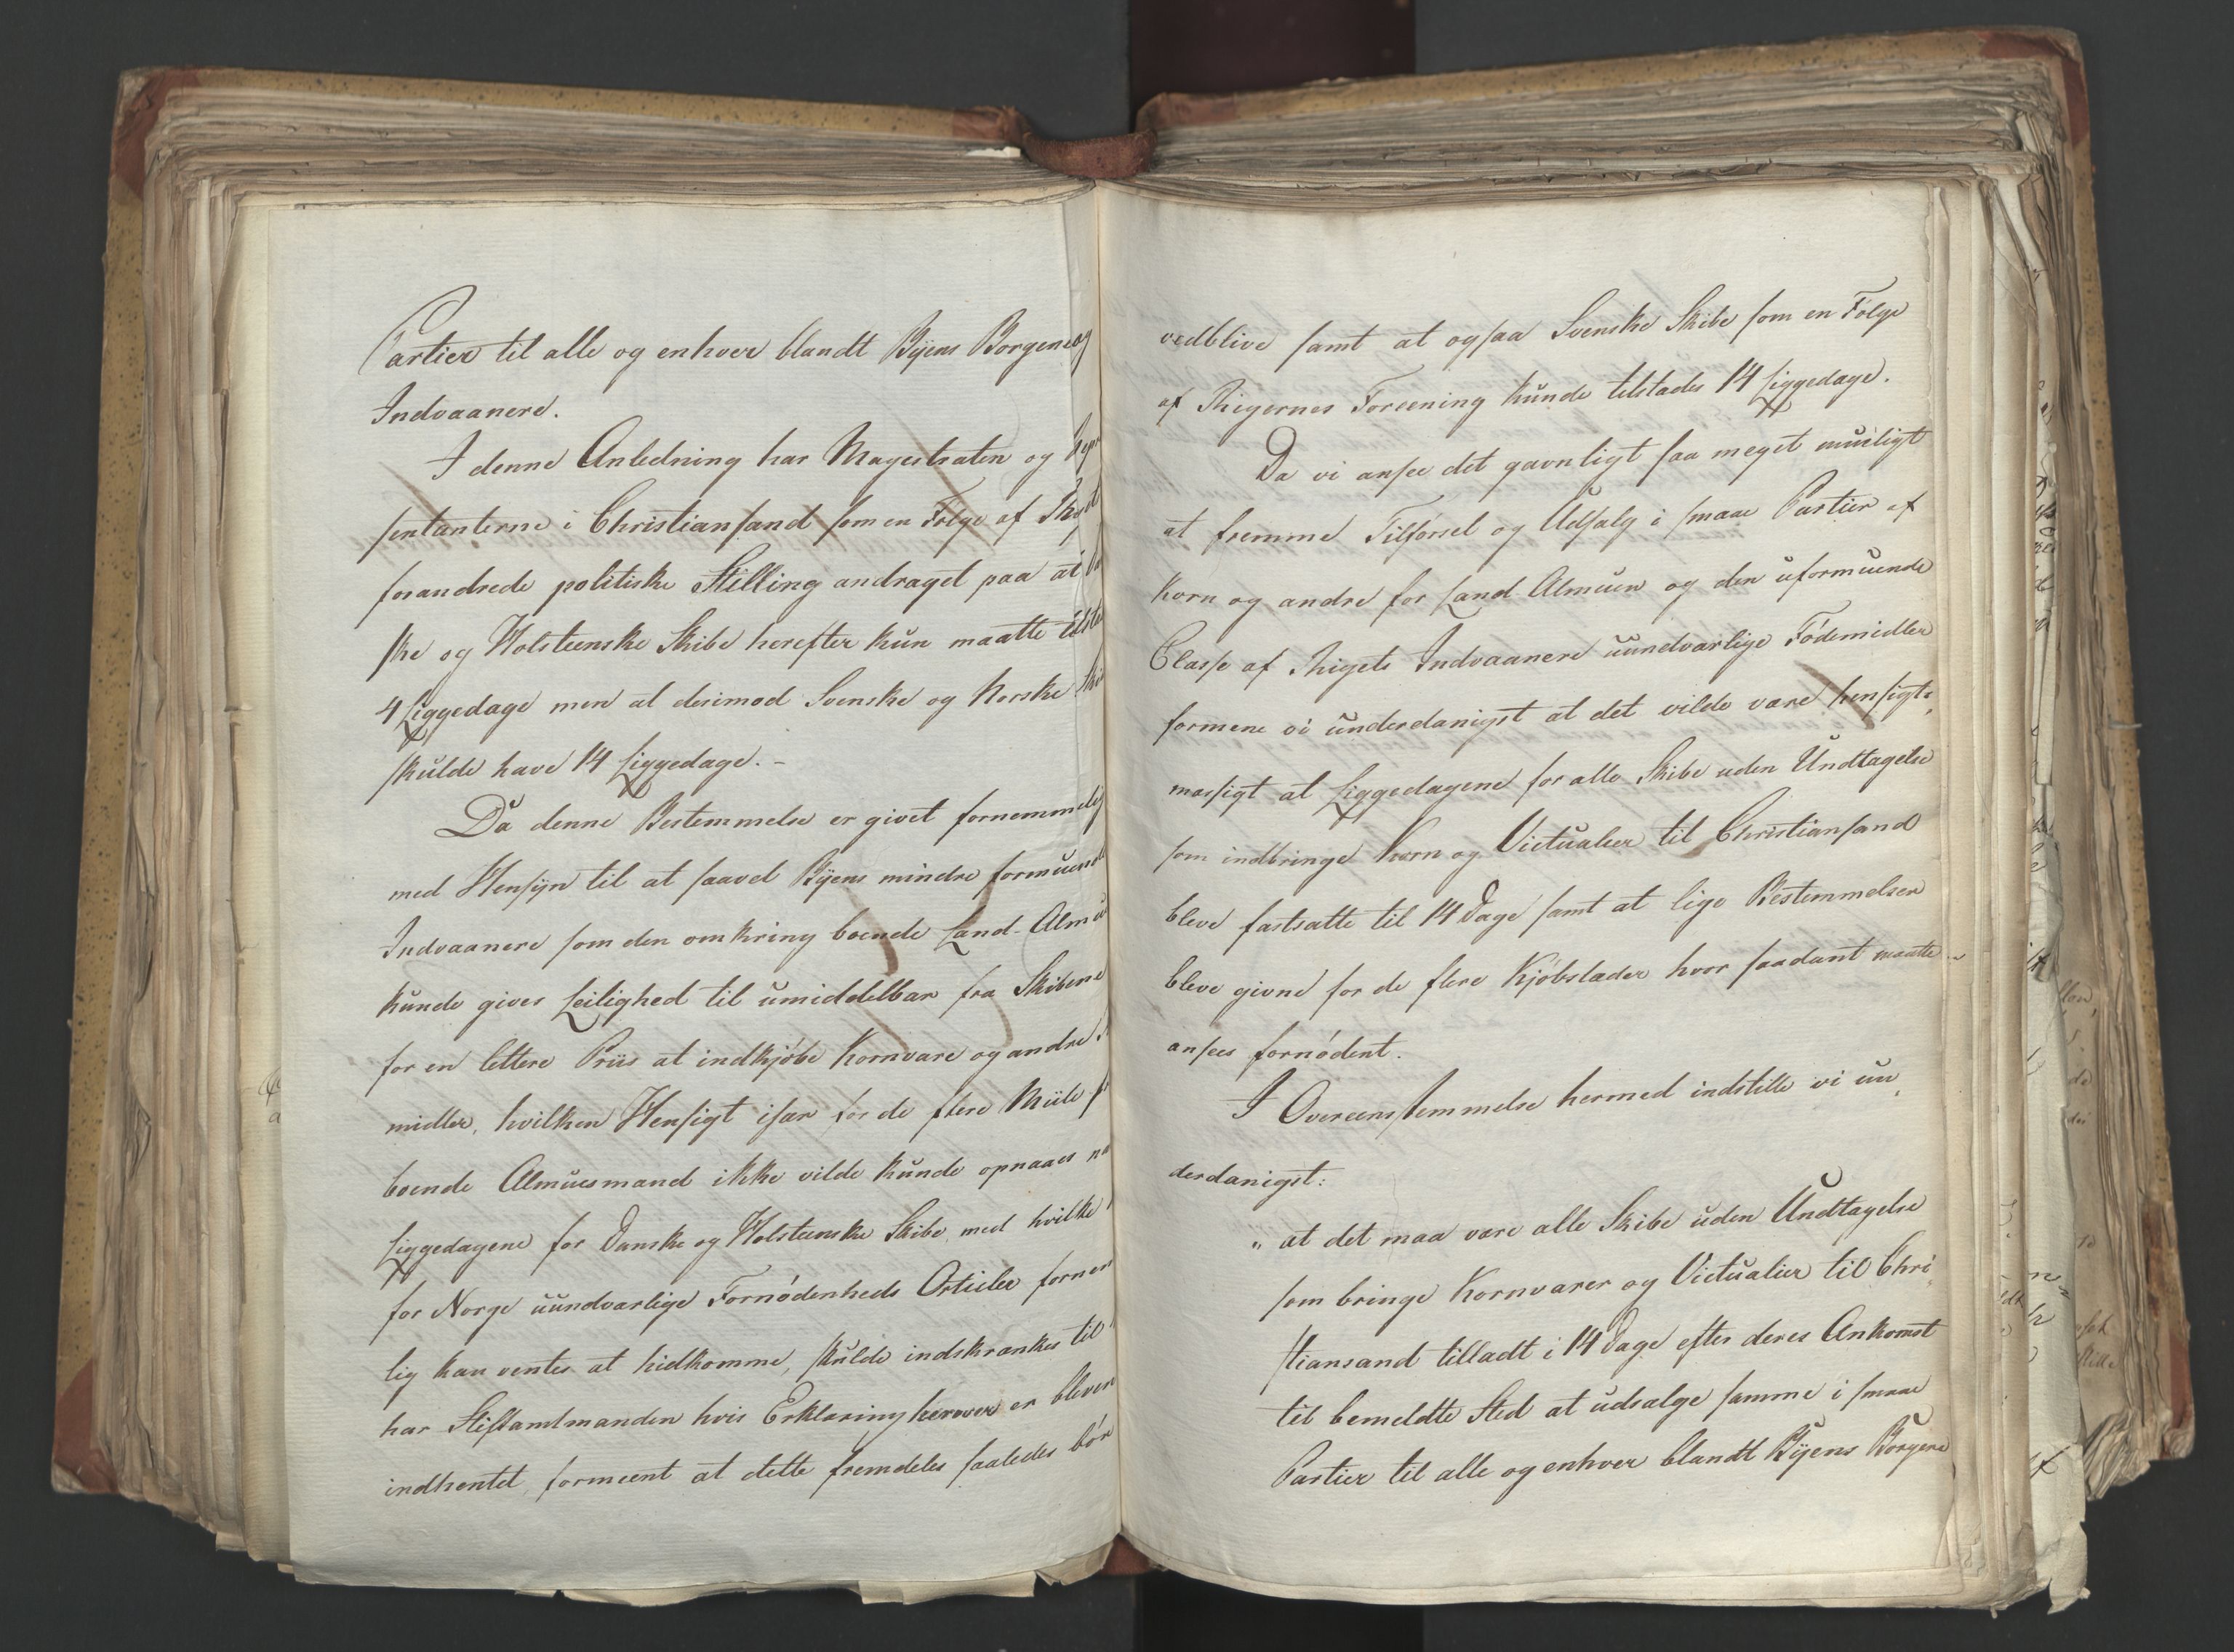 Partier til alle og enhver blandt Byens Borgere og
Indvaanere.
I denne Anledning har Magestraten og
sentanterne i Christiansand som en Følge af
forandrede politiske Stilling andraget paa at
ske og Holsteenske Skibe herefter kun maatte
4 Liggedage men at derimod Svenske og Norske
skulde have 14 Liggedage. -
Da denne Bestemmelse er givet fornemmelig
med Hensyn til at saavel Byens mindre formuende
Indvaanere som den omkring boende Land-Almue
kunde gives Leilighed til umiddelbar fra Skibene
for en lettere Priis at indkjøbe Kornvare og andre
midler, hvilken Hensigt især for de flere Miile
boende Almuesmand ikke vilde kunde opnaaes
Liggedagene for Danske og Holsteenske Skibe, med hvilke
for Norge uundværlige Fornødenheds Articler
lig kan ventes at hidkomme, skulde indskrænkes til
har Stiftamtmanden hvis Erklæring herover er bleven
indhentet, formeent at dette fremdeles saaledes bør
vedblive samt at ogsaa Svenske Skibe som en Følge
af Rigernes Foreening kunde tilstades 14 Liggedage.
Da vi ansee det gavnligt saa meget mueligt
at fremme Tilførsel og Udsalg i smaae Partier af
Korn og andre for Land Almuen og den uformuende
Classe af Rigets Indvaanere uundværlige Fødemidler
formene vi underdanigst at det vilde være hensigts
mæssigt at Liggedagene for alle Skibe uden Undtagelse
som indbringe Korn og Victualier til Christiansand
bleve fastsatte til 14 Dage samt at lige Bestemmelser
bleve givne for de flere Kjøbstæder hvor saadant maatte
ansees fornødent.
I Overeensstemmelse hermed indstille vi un
derdanigst:
" at det maa være alle Skibe uden Undtagelse
som bringe Kornvarer og Victualier til Chri
stiansand tilladt i 14 Dage efter deres Ankomst
til bemeldte Sted at udsælge samme i smaae
Partier til alle og enhver blandt Byens Borgere